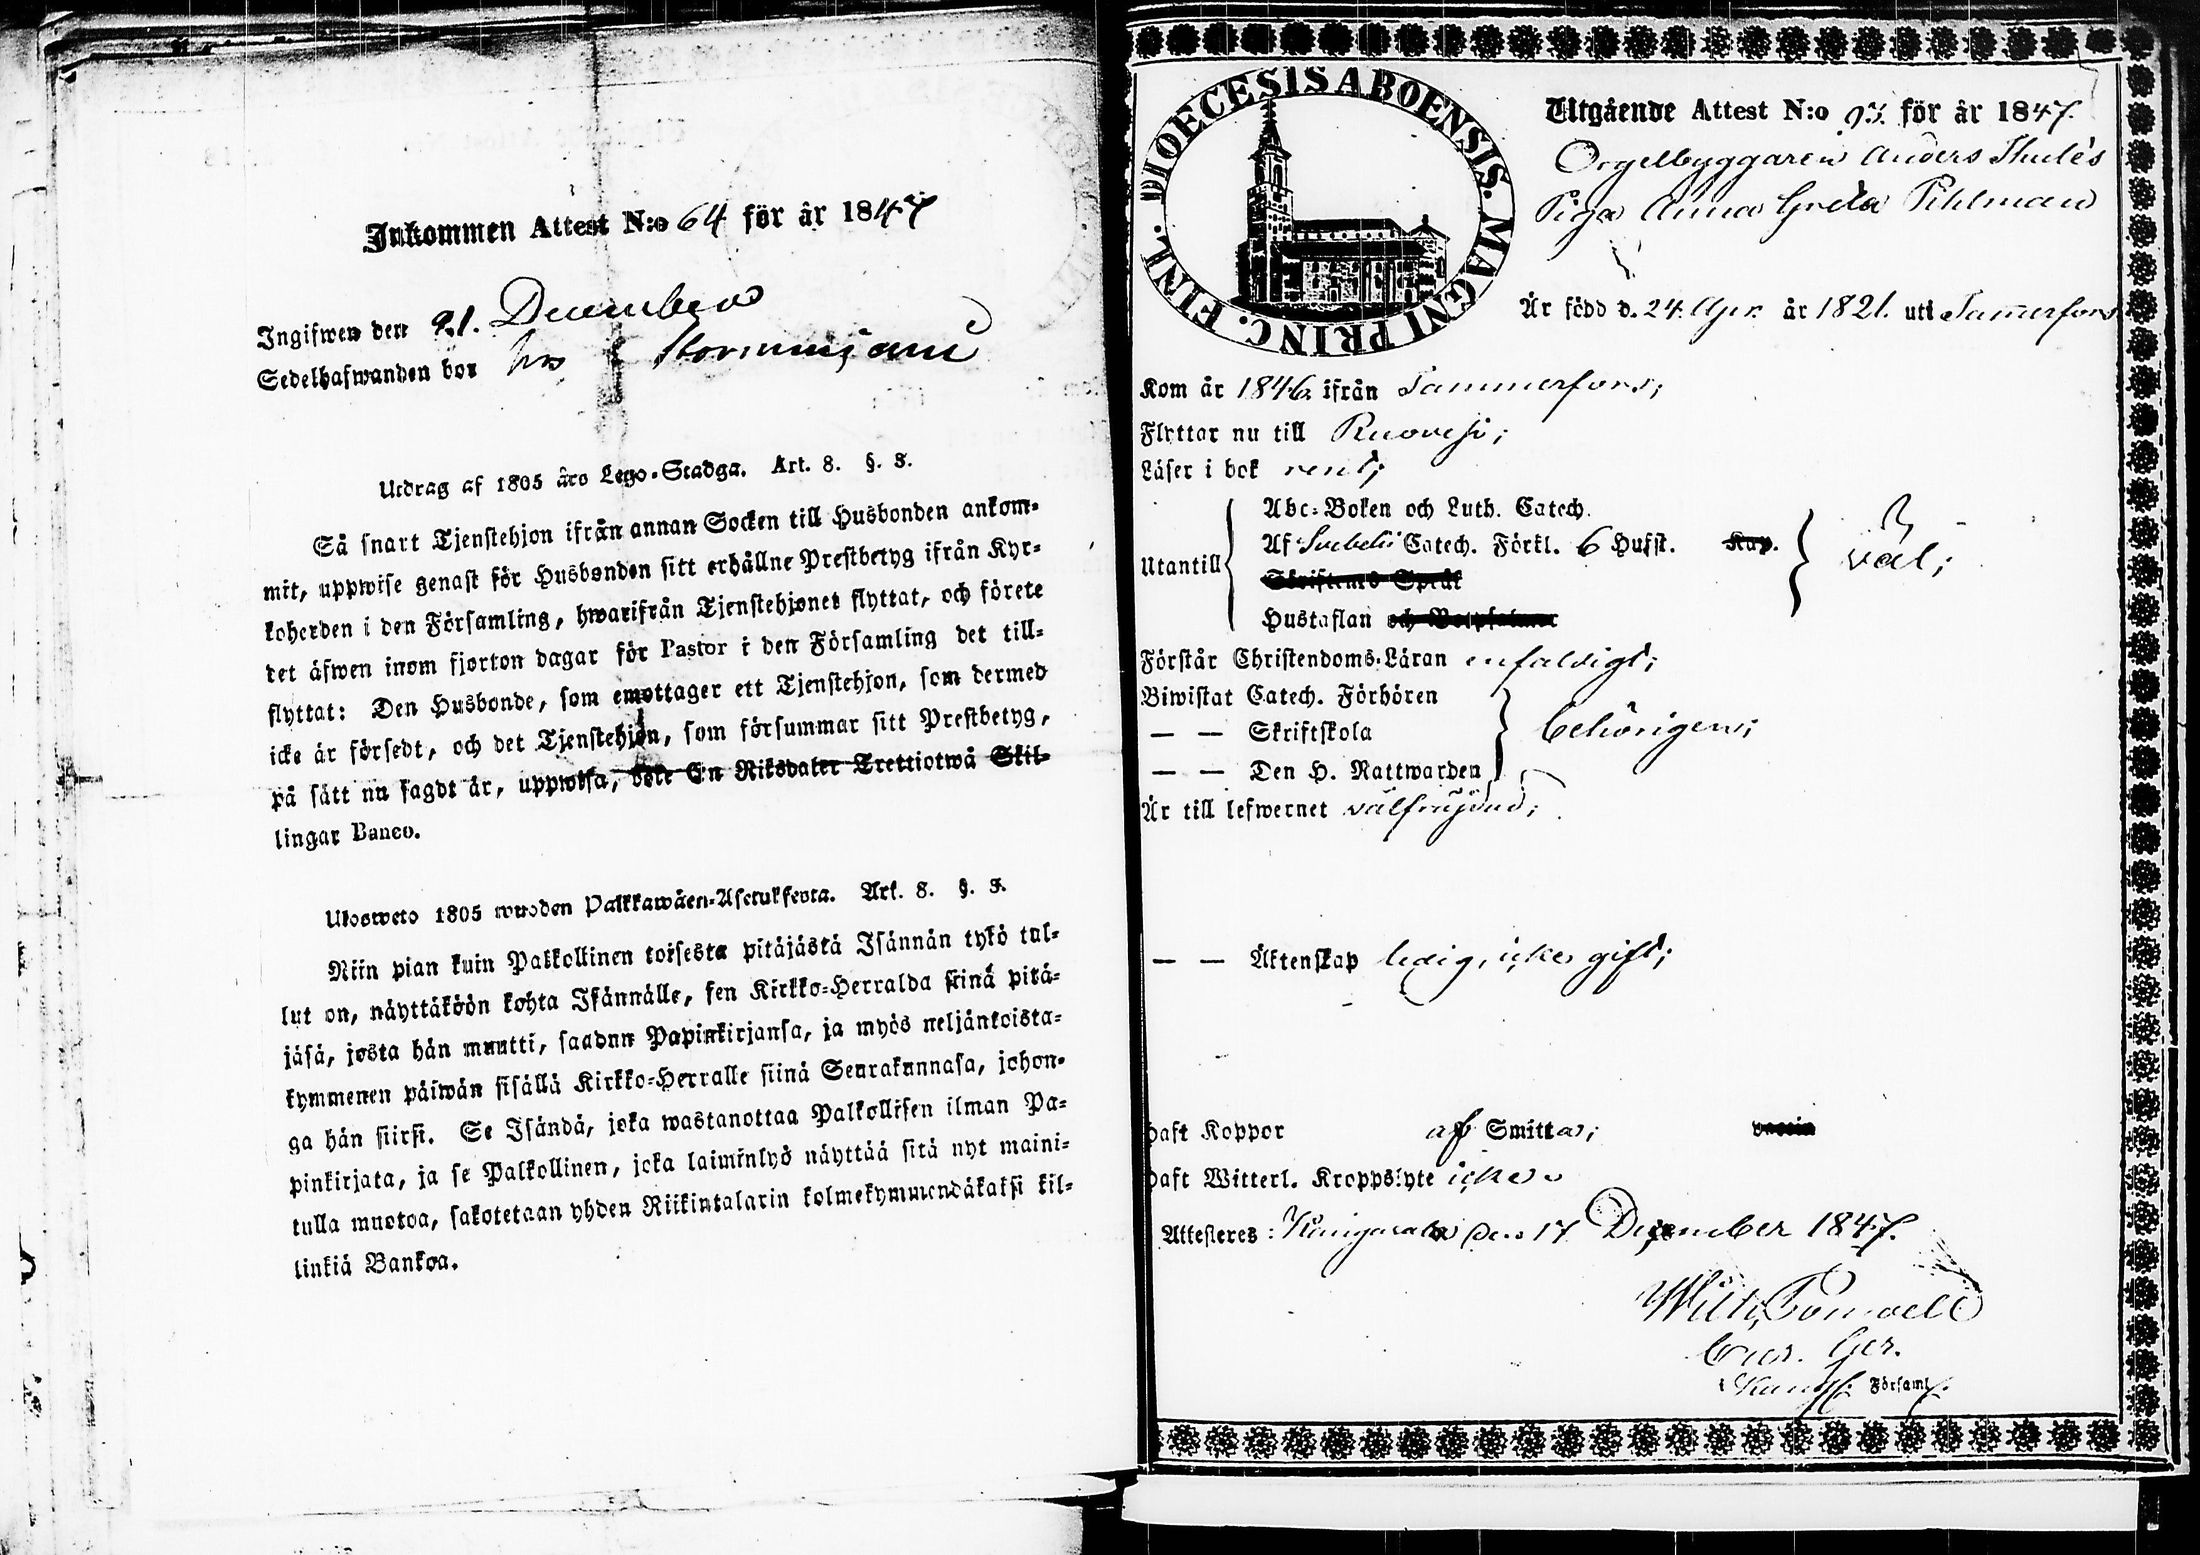 Inkommen Attest N:o 64 för år 1847
Ingifwen den 21. December
Sedelhafwanden bor hos
Utdrag af 1805 års Lego-Stadga. Art. 8. §. 3.
Så snart Tjenstehjon ifrån annan Socken till Husbonden ankom-
mit, uppwise genast för Husbonden sitt erhållne Prestbetyg ifrån Kyr-
koherden i den Församling, hwarifrån Tjenstehjonet flyttat, och förete
det äfwen inom fjorton dagar för Pastor i den Församling det till-
flyttat: Den Husbonde, som emottager ett Tjenstehjon, som dermed
icke är försedt, och det Tjenstehjon, som försummar sitt Prestbetyg,
på sätt nu sagdt är, uppwisa, böte En Riksdaler Trettiotwå Skil-
lingar Banco.
Ulosweto 1805 wuoden Palkkawäen-Asetuksesta. Art. 8. §. 3.
Niin pian kuin Palkollinen toisesta pitäjästä Isännän tykö tul-
lut on, näyttäköön kohta Isännälle, sen Kirkko-Herralda siinä pitä-
jäsä, josta hän muutti, saadun Papinkirjansa, ja myös neljäntoista-
kymmenen päiwän sisällä Kirkko-Herralle siinä Seurakunnasa, johon-
ga hän siirsi. Se Isändä, joka wastanottaa Palkollisen ilman Pa-
pinkirjata, ja se Palkollinen, joka laiminlyö näyttää sitä nyt maini-
tulla muotoa, sakotetaan yhden Riikintalarin kolmekymmendäkaksi kil-
linkiä Bankoa.
DIOECESIS ABOENSIS. MAGNI PRINC. FINL.
Utgående Attest N:o 93. för år 1847.
Orgelbyggaren Anders Thulés
Piga Anna Greta Pihlman
Är född d. 24. Apr. år 1821. uti Tammerfors
Kom år 1846. ifrån Tammerfors;
Flyttar nu till Ruovesi;
Läser i bok rent;
Utantill
Abc-Boken och Luth. Catech.
Af Svebelii Catech. Förkl. 6 Hufst. Kap.
Skriftenes Språk
Hustaflan och Botpsalmer
väl;
Förstår Christendoms-Läran enfaldigt;
Biwistat Catech. Förhören
— — Skriftskola
— — Den H. Nattwarden
behörigen;
Är till lefwernet välfrejdad;
— — Äktenskap ledig, icke gift;
Haft Koppor af Smitta; vaccin
Haft Witterl. Kroppslyte icke
Attesteres: Kangasala den 17 December 1847.
Cur. Ger.
i Kangs. Församl.